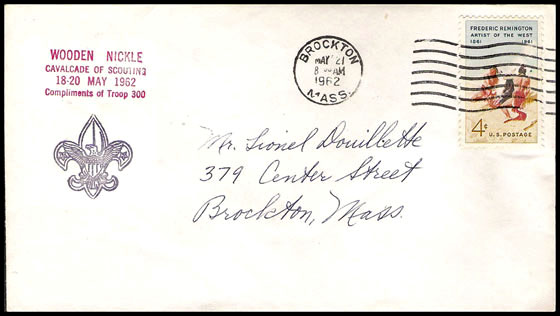 WOODEN NICKLE
CAVALCADE OF SCOUTING
18-20 MAY 1962
Compliments of Troop 300
BROCKTON
MAY 21
AM
1962
MASS.
FREDERIC REMINGTON
ARTIST OF THE WEST
1861 1961
4¢ U.S. POSTAGE
Mr. Lionel Douillette
379 Center Street
Brockton, Mass.